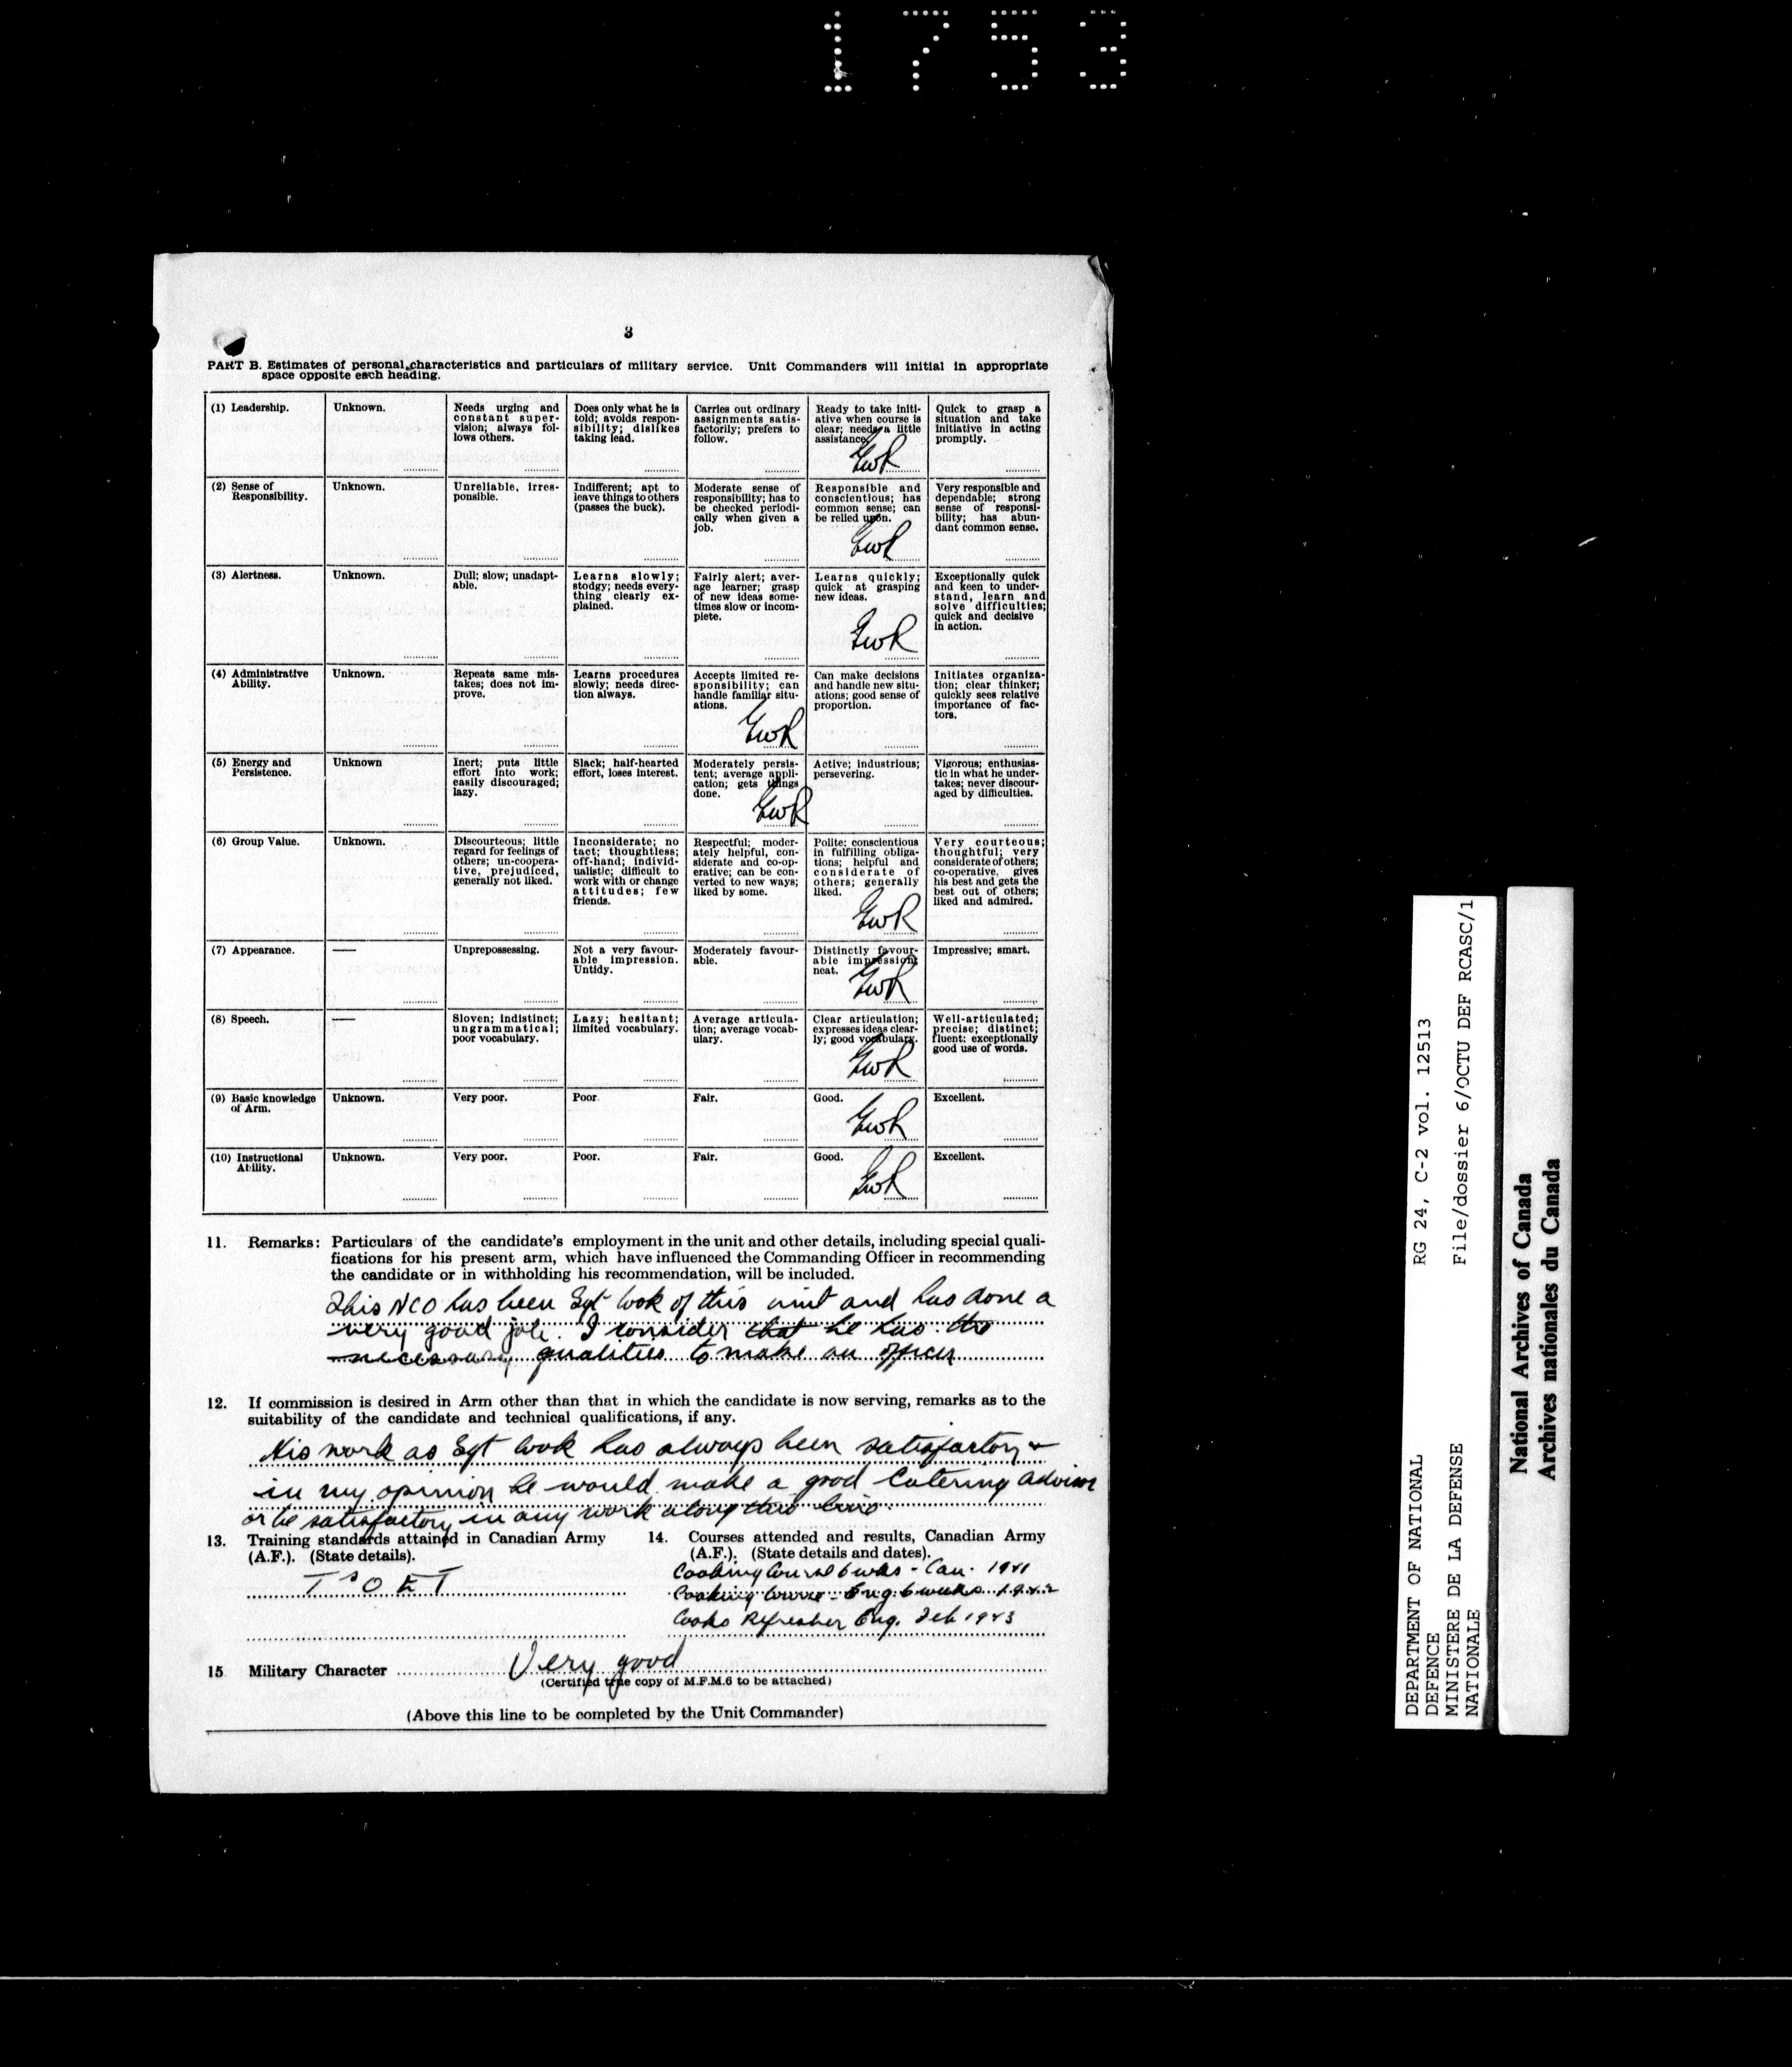 1753
3
PART B. Estimates of personal characteristics and particulars of military service. Unit Commanders will initial in appropriate
space opposite each heading.
(1) Leadership.
Unknown.
Needs urging and
constant super-
vision; always fol-
lows others.
Does only what he is
told; avoids respon-
sibility; dislikes
taking lead.
Carries out ordinary
assignments satis-
factorily; prefers to
follow.
Ready to take initi-
ative when course is
clear; needs a little
assistance.
EWR
Quick to grasp a
situation and take
initiative in acting
promptly.
(2) Sense of
Responsibility.
Unknown.
Unreliable, irres-
ponsible.
Indifferent; apt to
leave things to others
(passes the buck).
Moderate sense of
responsibility; has to
be checked periodi-
cally when given a
job.
Responsible and
conscientious; has
common sense; can
be relied upon.
EWR
Very responsible and
dependable; strong
sense of responsi-
bility; has abun-
dant common sense.
(3) Alertness.
Unknown.
Dull; slow; unadapt-
able.
Learns slowly;
stodgy; needs every-
thing clearly ex-
plained.
Fairly alert; aver-
age learner; grasp
of new ideas some-
times slow or incom-
plete.
Learns quickly;
quick at grasping
new ideas.
EWR
Exceptionally quick
and keen to under-
stand, learn and
solve difficulties;
quick and decisive
in action.
(4) Administrative
Ability.
Unknown.
Repeats same mis-
takes; does not im-
prove.
Learns procedures
slowly; needs direc-
tion always.
Accepts limited re-
sponsibility; can
handle familiar situ-
ations.
EWR
Can make decisions
and handle new situ-
ations; good sense of
proportion.
Initiates organiza-
tion; clear thinker;
quickly sees relative
importance of fac-
tors.
(5) Energy and
Persistence.
Unknown
Inert; puts little
effort into work;
easily discouraged;
lazy.
Slack; half-hearted
effort, loses interest.
Moderately persis-
tent; average appli-
cation; gets things
done.
EWR
Active; industrious;
persevering.
Vigorous; enthusias-
tic in what he under-
takes; never discour-
aged by difficulties.
(6) Group Value.
Unknown.
Discourteous; little
regard for feelings of
others; un-coopera-
tive, prejudiced,
generally not liked.
Inconsiderate; no
tact; thoughtless;
off-hand; individ-
ualistic; difficult to
work with or change
attitudes; few
friends.
Respectful; moder-
ately helpful, con-
siderate and co-op-
erative; can be con-
verted to new ways;
liked by some.
Polite; conscientious
in fulfilling obliga-
tions; helpful and
considerate of
others; generally
liked.
EWR
Very courteous;
thoughtful; very
considerate of others;
co-operative, gives
his best and gets the
best out of others;
liked and admired.
(7) Appearance.
—
Unprepossessing.
Not a very favour-
able impression.
Untidy.
Moderately favour-
able.
Distinctly favour-
able impression;
neat.
EWR
Impressive; smart.
(8) Speech.
—
Sloven; indistinct;
ungrammatical;
poor vocabulary.
Lazy; hesitant;
limited vocabulary.
Average articula-
tion; average vocab-
ulary.
Clear articulation;
expresses ideas clear-
ly; good vocabulary.
EWR
Well-articulated;
precise; distinct;
fluent; exceptionally
good use of words.
(9) Basic knowledge
of Arm.
Unknown.
Very poor.
Poor.
Fair.
Good.
EWR
Excellent.
(10) Instructional
Ability.
Unknown.
Very poor.
Poor.
Fair.
Good.
EWR
Excellent.
11. Remarks: Particulars of the candidate's employment in the unit and other details, including special quali-
fications for his present arm, which have influenced the Commanding Officer in recommending
the candidate or in withholding his recommendation, will be included.
This NCO has been Sgt Cook of this unit and has done a
very good job. I consider that he has the
necessary qualities to make an officer
12. If commission is desired in Arm other than that in which the candidate is now serving, remarks as to the
suitability of the candidate and technical qualifications, if any.
His work as Sgt Cook has always been satisfactory &
in my opinion he would make a good Catering Advisor
or be satisfactory in any work along this line.
13. Training standards attained in Canadian Army
(A.F.). (State details).
TsOET
14. Courses attended and results, Canadian Army
(A.F.). (State details and dates).
Cooking Course 6 wks - Can. 1941
Cooking Course - Eng. 6 weeks 1942
Cooks Refresher Eng. Feb 1943
15 Military Character Very good
(Certified true copy of M.F.M.6 to be attached)
(Above this line to be completed by the Unit Commander)
DEPARTMENT OF NATIONAL
DEFENCE
MINISTERE DE LA DEFENSE
NATIONALE
RG 24, C-2 vol. 12513
File/dossier 6/OCTU DEF RCASC/1
National Archives of Canada
Archives nationales du Canada